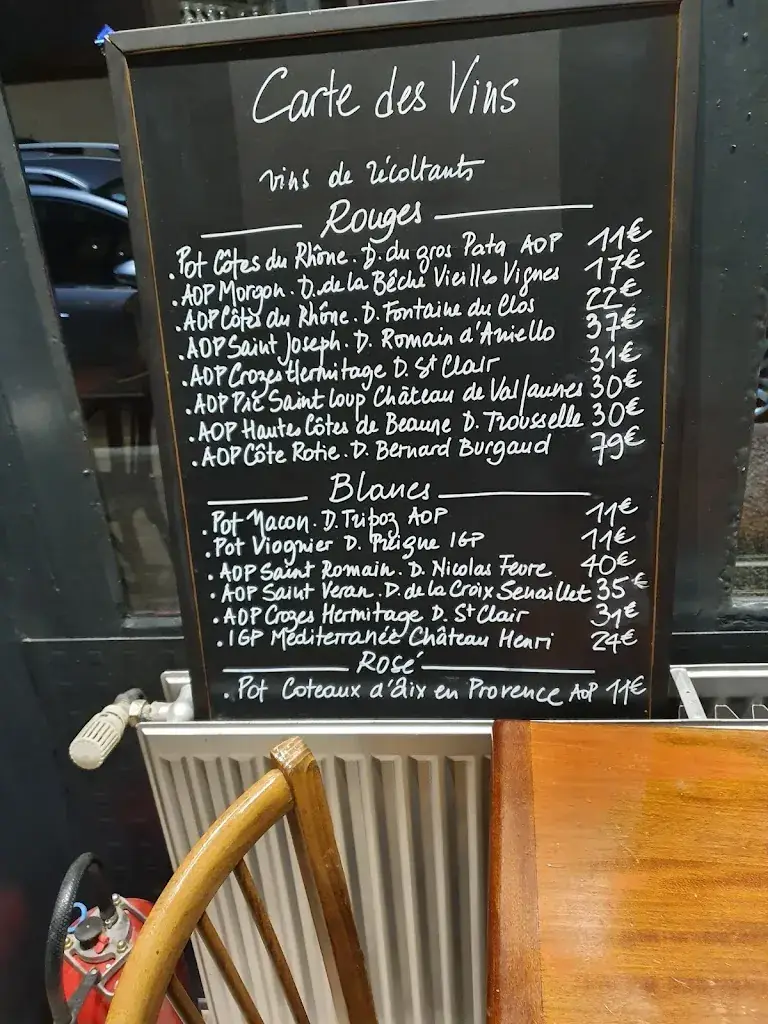 Carte des Vins
vins de récoltants
Rouges
. Pot Côtes du Rhône. D. du gros Pata AOP 11€
. AOP Morgon. D. de la Bêche Vieilles Vignes 17€
. AOP Côtes du Rhône. D. Fontaine du Clos 22€
. AOP Saint Joseph. D. Romain d'Aniello 37€
. AOP Crozes Hermitage D. St Clair 31€
. AOP Pic Saint Loup Château de Valflaunes 30€
. AOP Hautes Côtes de Beaune D. Trousselle 30€
. AOP Côte Rotie. D. Bernard Burgaud 79€
Blancs
. Pot Macon. D. Tripoz AOP 11€
. Pot Viognier D. IGP 11€
. AOP Saint Romain. D. Nicolas Fevre 40€
. AOP Saint Veran. D. de la Croix Senaillet 35€
. AOP Crozes Hermitage D. St Clair 31€
. IGP Méditerranée Château Henri 24€
Rosé
. Pot Coteaux d'Aix en Provence AOP 11€